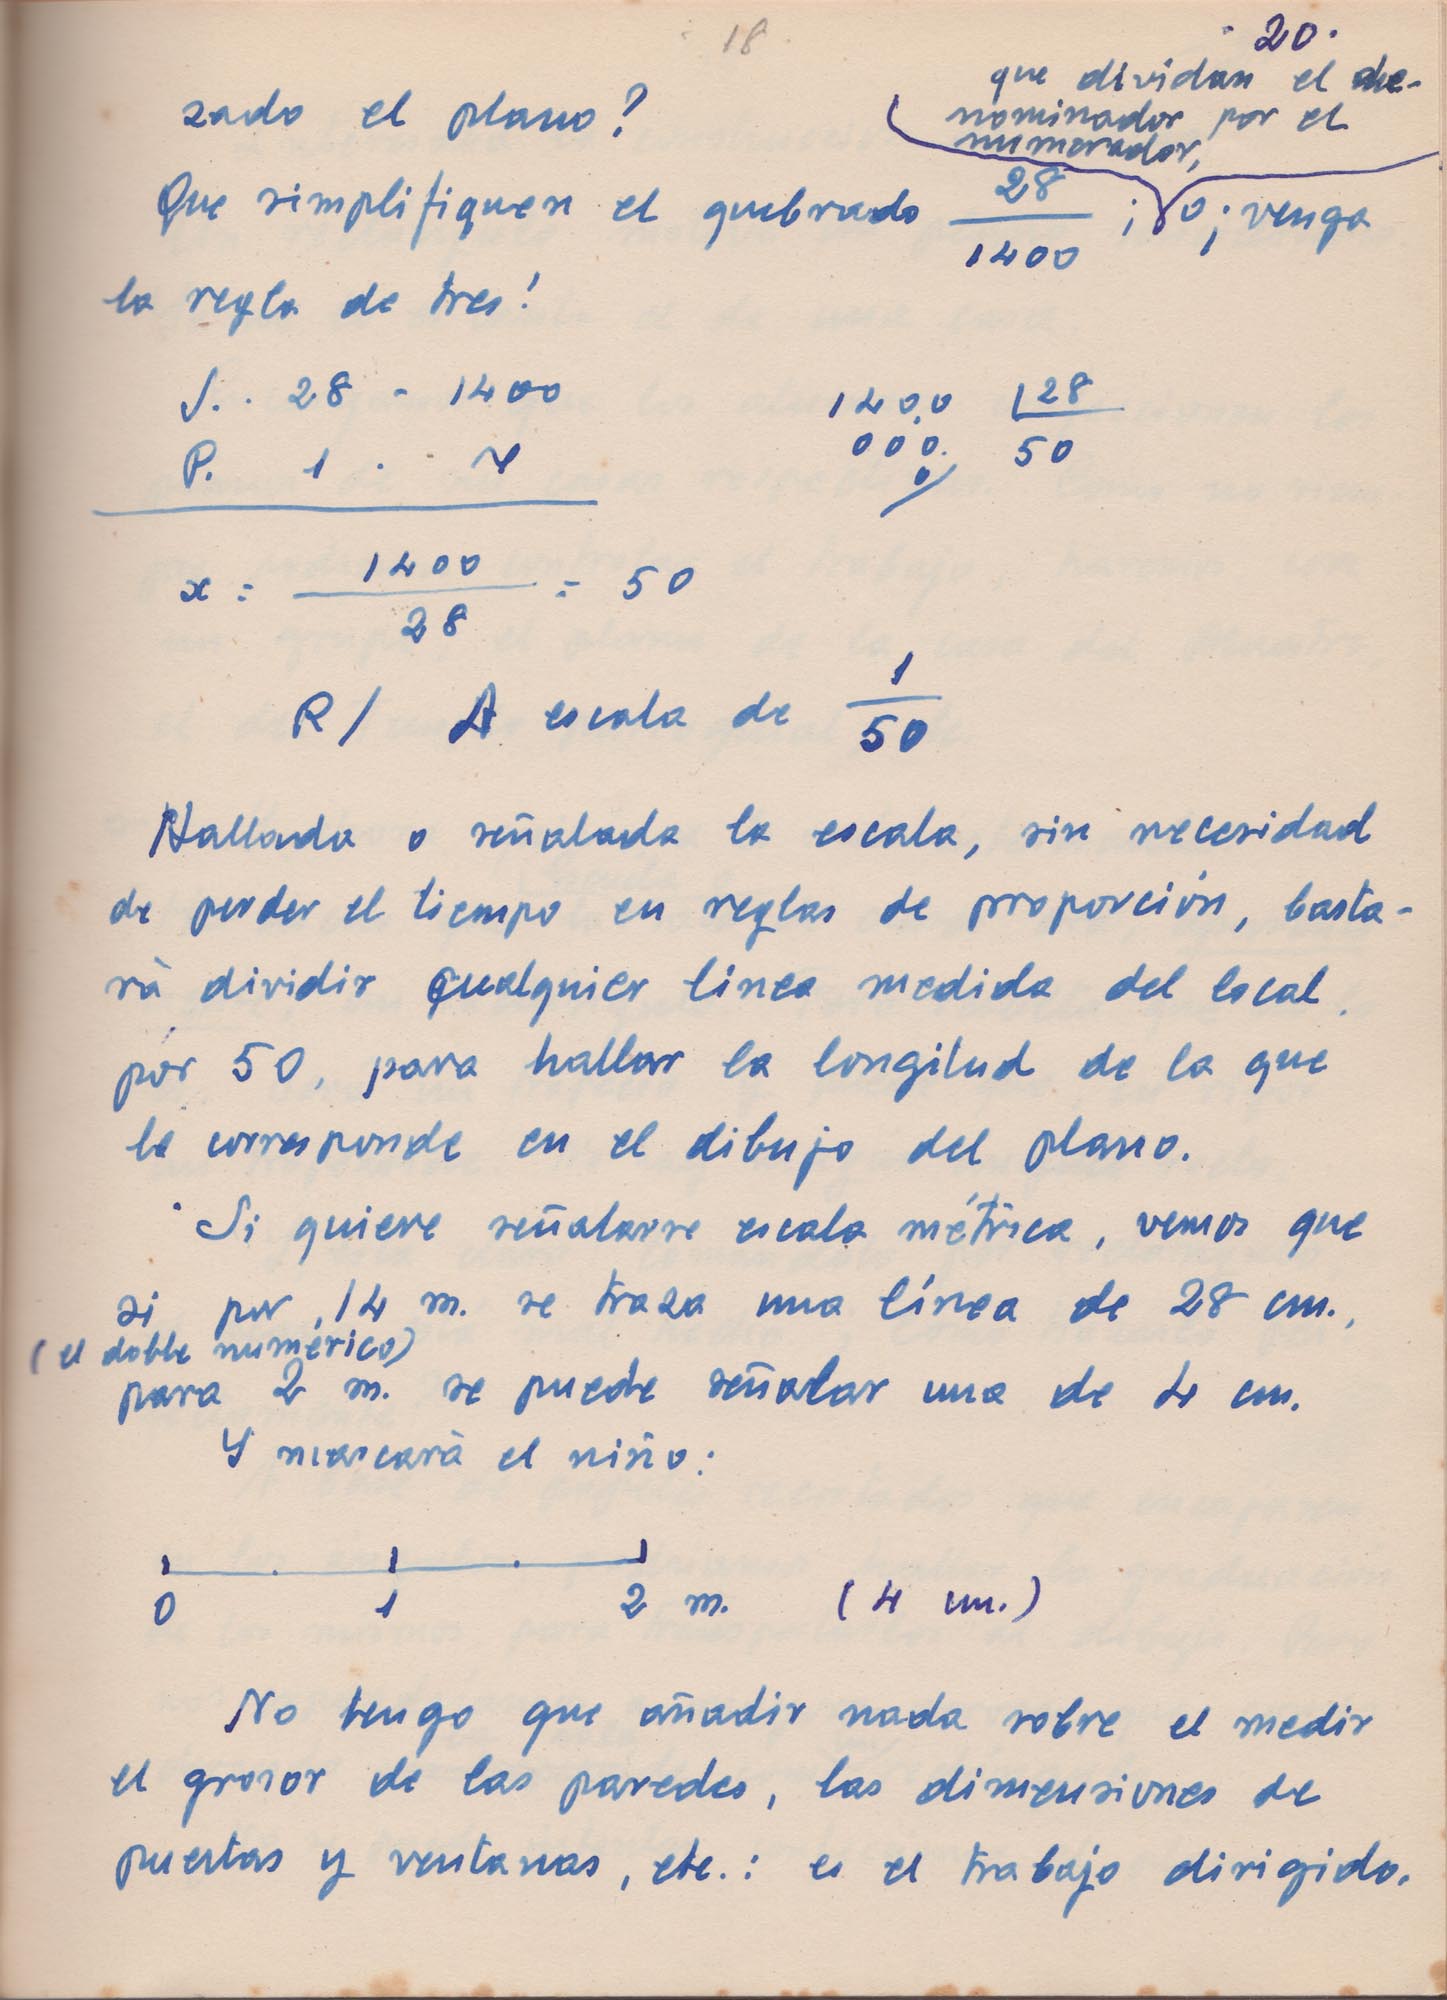 18
20.
que dividan el de-
nominador por el
numerador,
zado el plano?
Que simplifiquen el quebrado 28/1400 ; o; venga
la regla de tres!
S. . 28 - 1400
P. 1 . x
1400 28
000 50
0
x = 1400/28 = 50
R/ A escala de 1/50
Hallada o señalada la escala, sin necesidad
de perder el tiempo en reglas de proporción, basta-
rà dividir qualquier línea medida del local
por 50, para hallar la longitud de la que
le corresponde en el dibujo del plano.
Si quiere señalarse escala métrica, vemos que
si por 14 m. se traza una línea de 28 cm.,
(el doble numérico)
para 2 m. se puede señalar una de 4 cm.
Y marcarà el niño:
0 1 2 m. (4 cm.)
No tengo que añadir nada sobre el medir
el grosor de las paredes, las dimensiones de
puertas y ventanas, etc.: es el trabajo dirigido.